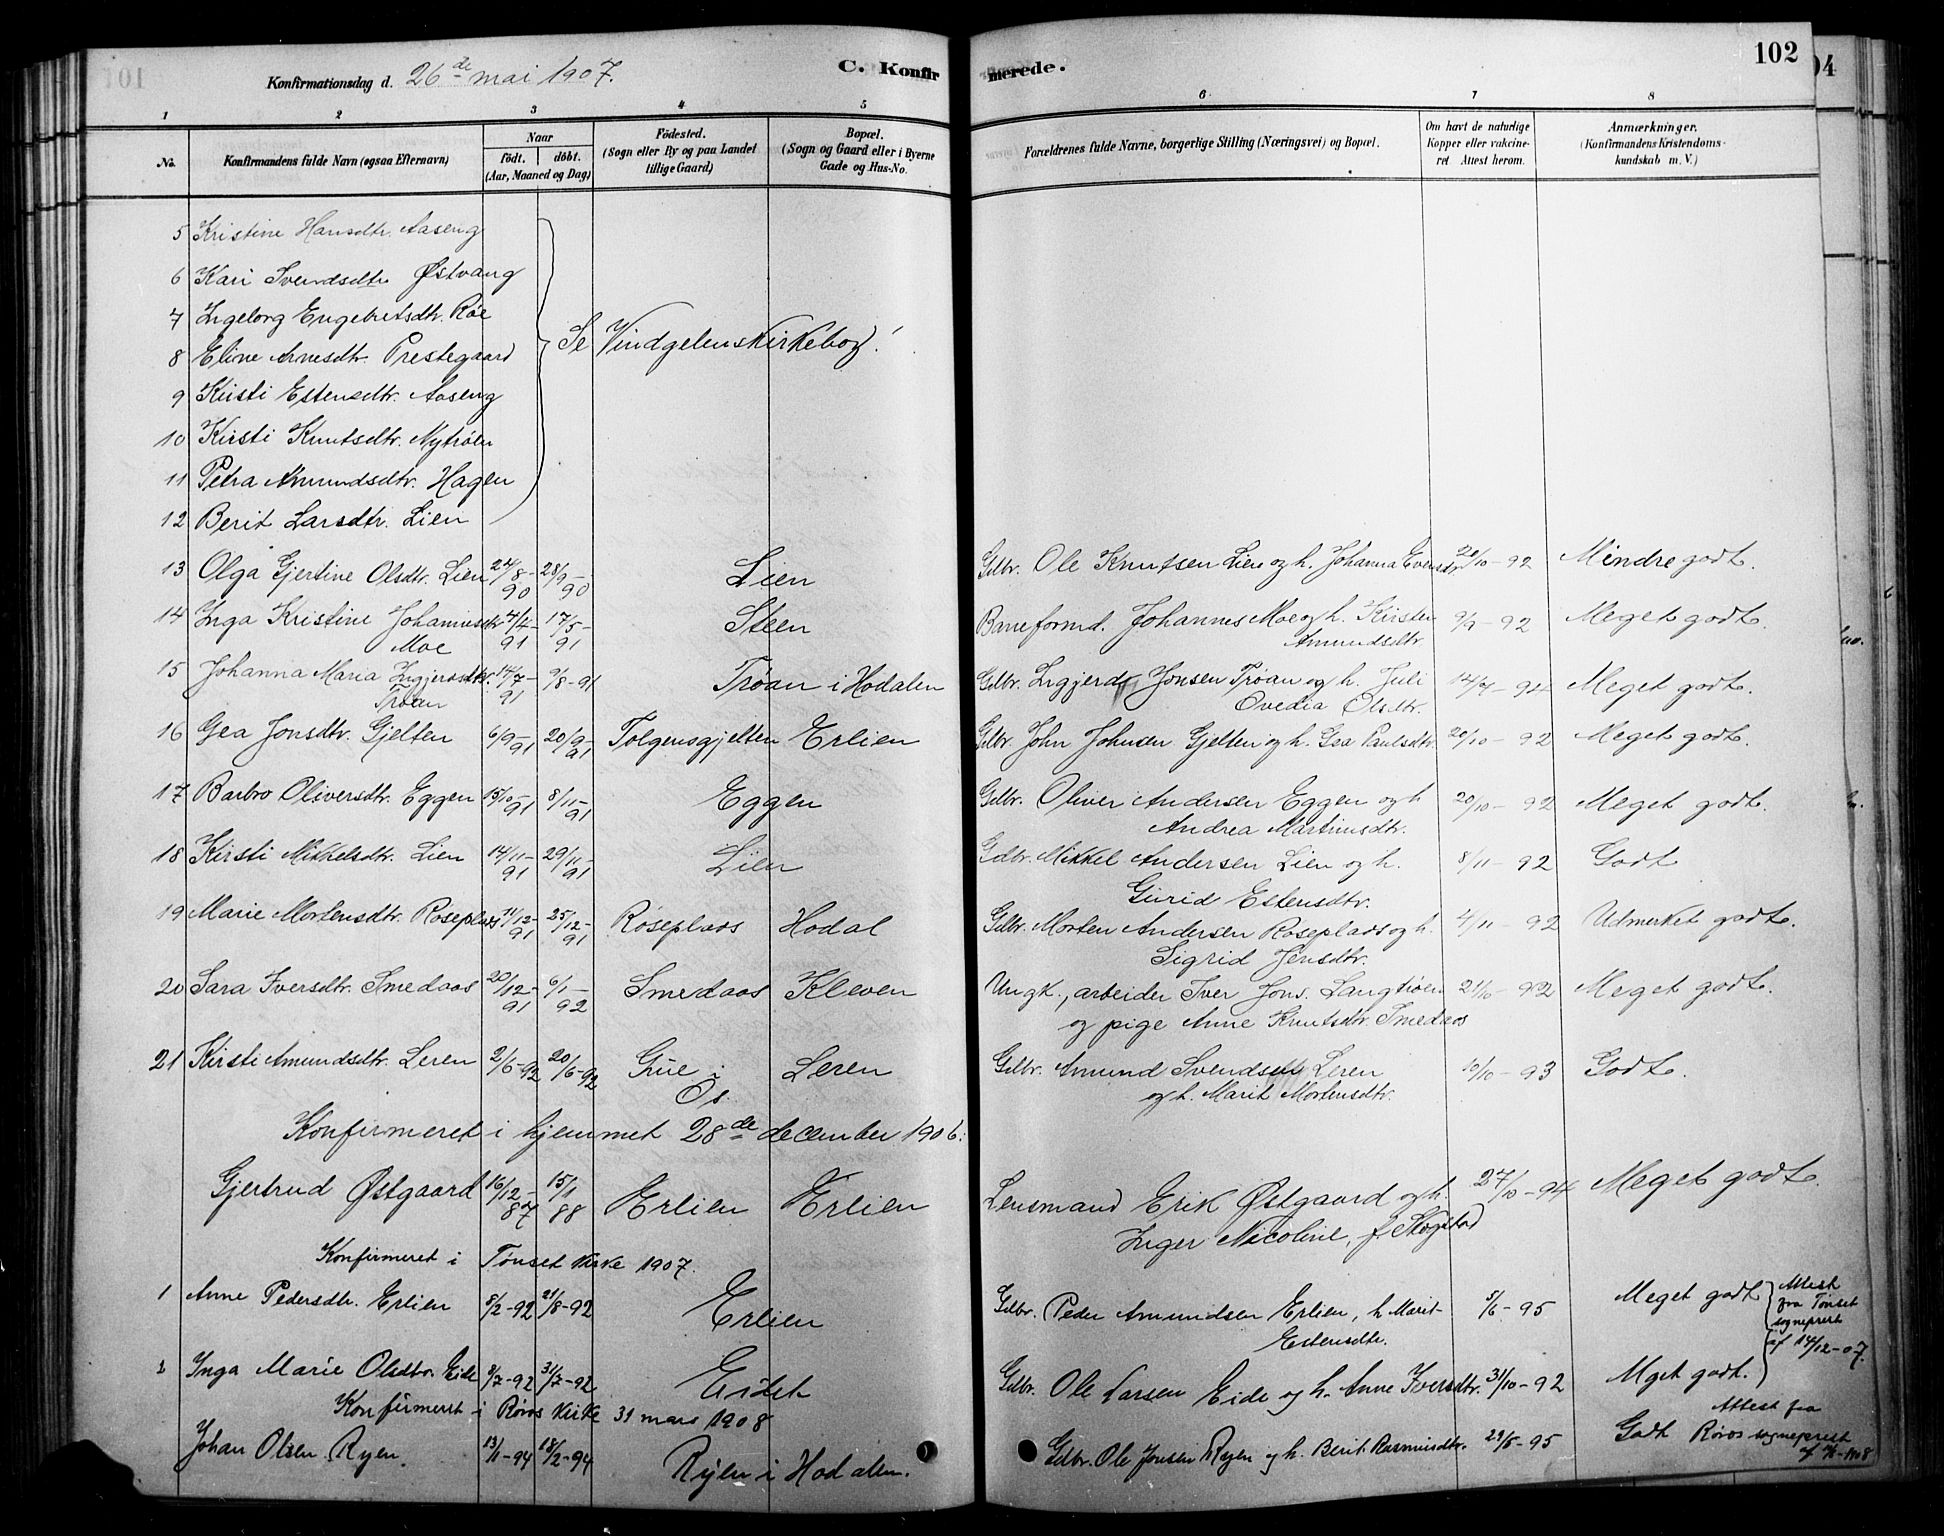 Konfirmationsdag d. 26de mai 1907.
C. Konfirmerede.
102
104
1 2 3 4 5 6 7 8
No.
Konfirmandens fulde Navn (ogsaa Efternavn)
Naar
födt. döbt.
(Aar, Maaned og Dag)
Födested.
(Sogn eller By og paa Landet
tillige Gaard)
Bopæl.
(Sogn og Gaard eller i Byerne
Gade og Hus-No.
Forældrenes fulde Navne, borgerlige Stilling (Næringsvei) og Bopæl.
Om havt de naturlige
Kopper eller vakcine-
ret Attest herom.
Anmærkninger.
(Konfirmandens Kristendoms-
kundskab m. V.)
5 Kristine Hansdtr. Aaseng
6 Kari Svendsdtr Østvang
7 Ingeborg Engebretsdtr. Røe
8 Eline Arnesdtr. Prestegaard
Se Vindgelens kirkebog!
9 Kirsti Estensdtr. Aaseng
10 Kirsti Knutsdtr. Nytrøen
11 Petra Amundsdtr. Hagen
12 Berit Larsdtr. Lien
13 Olga Gjertine Olsdtr. Lien 24/8-90 28/9-90 Lien Gdbr. Ole Knutsen Lien og h. Johanna Evensdtr 20/10-92 Mindre godt.
14 Inga Kristine Johannesdtr 4/4-91 17/5-91 Steen Baneformd. Johannes Moe og h. Kirsten 9/9-92 Meget godt.
Moe Amundsdtr
15 Johanna Maria Ingjerdsdtr. 14/7-91 9/8-91 Trøan i Hodalen Gdbr. Ingjerd Jonsen Trøan og h. Juli 14/7-94 Meget godt.
Trøan Ovedia Olsdtr.
16 Gea Jonsdtr. Gjelten 6/9-91 20/9-91 Tolgensgjelten Erlien Gdbr. John Johnsen Gjelten og h. Gea Paulsdtr. 20/10-92 Meget godt.
17 Barbro Oliversdtr. Eggen 15/10-91 8/11-91 Eggen Gdbr. Oliver Andersen Eggen og h 20/10-92 Meget godt.
Andrea Martinusdtr.
18 Kirsti Mikkelsdtr. Lien 14/11-91 29/11-91 Lien Gdbr. Mikkel Andersen Lien og h. 8/11-92 Godt
Gurid Estensdtr.
19 Marie Mortensdtr. Røseplads 11/12-91 25/12-91 Røseplads Hodal Gdbr. Morten Andersen Røseplads og h. 4/11-92 Udmerket godt.
Sigrid Jensdtr.
20 Sara Iversdtr. Smedaas 20/12-91 6/1-92 Smedaas Kleven Ungk., arbeider Iver Jons. Langtrøen 21/10-92 Meget godt.
og pige Anne Knutsdtr. Smedaas
21 Kirsti Amundsdtr. Leren 2/6-92 20/6-92 Grue i Leren Gdbr. Amund Svendsen Leren 10/10-93 Godt.
Os. og h. Marit Mortensdtr.
Konfirmeret i hjemmet 28de december 1906:
Gjertrud Østgaard 16/12-87 15/1 88 Erlien Erlien Lensmand Erik Østgaard og h. 27/10-94 Meget godt.
Inger Nicoline, f. Skogstad
Konfirmeret i Tønset kirke 1907.
1 Anne Pedersdtr. Erlien 8/2-92 21/8-92 Erlien Gdbr. Peder Amundsen Erlien, h Marit 5/6-95 Meget godt
Estensdtr.
Attest
fra Tønset
sogneprest
af 14/12-07.
2 Inga Marie Olsdtr. Eide 8/7-92 31/7-92 Eidet Gdbr. Ole Larsen Eide og h. Anne Iversdtr. 31/10-92 Meget godt.
Konfirmeret i Røros kirke 31 mars 1908
Johan Olsen Ryen. 13/1-94 18/2-94 Ryen i Hodalen. Gdbr. Ole Jonsen Ryen og h. Berit Rasmusdtr. 29/5-95 Godt
Attest fra
Røros sogneprest